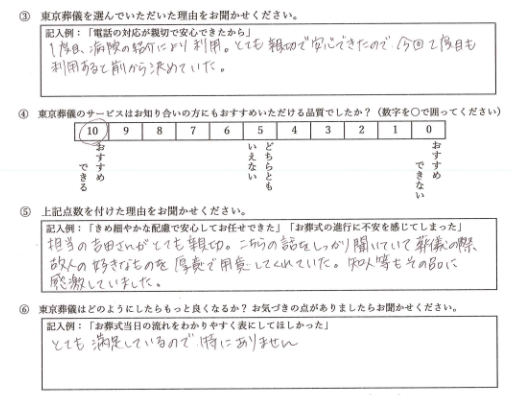 ③ 東京葬儀を選んでいただいた理由をお聞かせください。
記入例：「電話の対応が親切で安心できたから」
1度目、病院の紹介により利用。とても親切で安心できたので今回2度目も
利用すると前から決めていた。
④ 東京葬儀のサービスはお知り合いの方にもおすすめいただける品質でしたか？（数字を○で囲ってください）
10 9 8 7 6 5 4 3 2 1 0
おすすめ
できる
どちらとも
いえない
おすすめ
できない
⑤ 上記点数を付けた理由をお聞かせください。
記入例：「きめ細やかな配慮で安心してお任せできた」「お葬式の進行に不安を感じてしまった」
担当の吉田さんがとても親切。こちらの話をしっかり聞いていて葬儀の際、
故人の好きなものを写真で用意してくれていた。知人等もその品に
感激していました。
⑥ 東京葬儀はどのようにしたらもっと良くなるか？ お気づきの点がありましたらお聞かせください。
記入例：「お葬式当日の流れをわかりやすく表にしてほしかった」
とても満足しているので特にありません